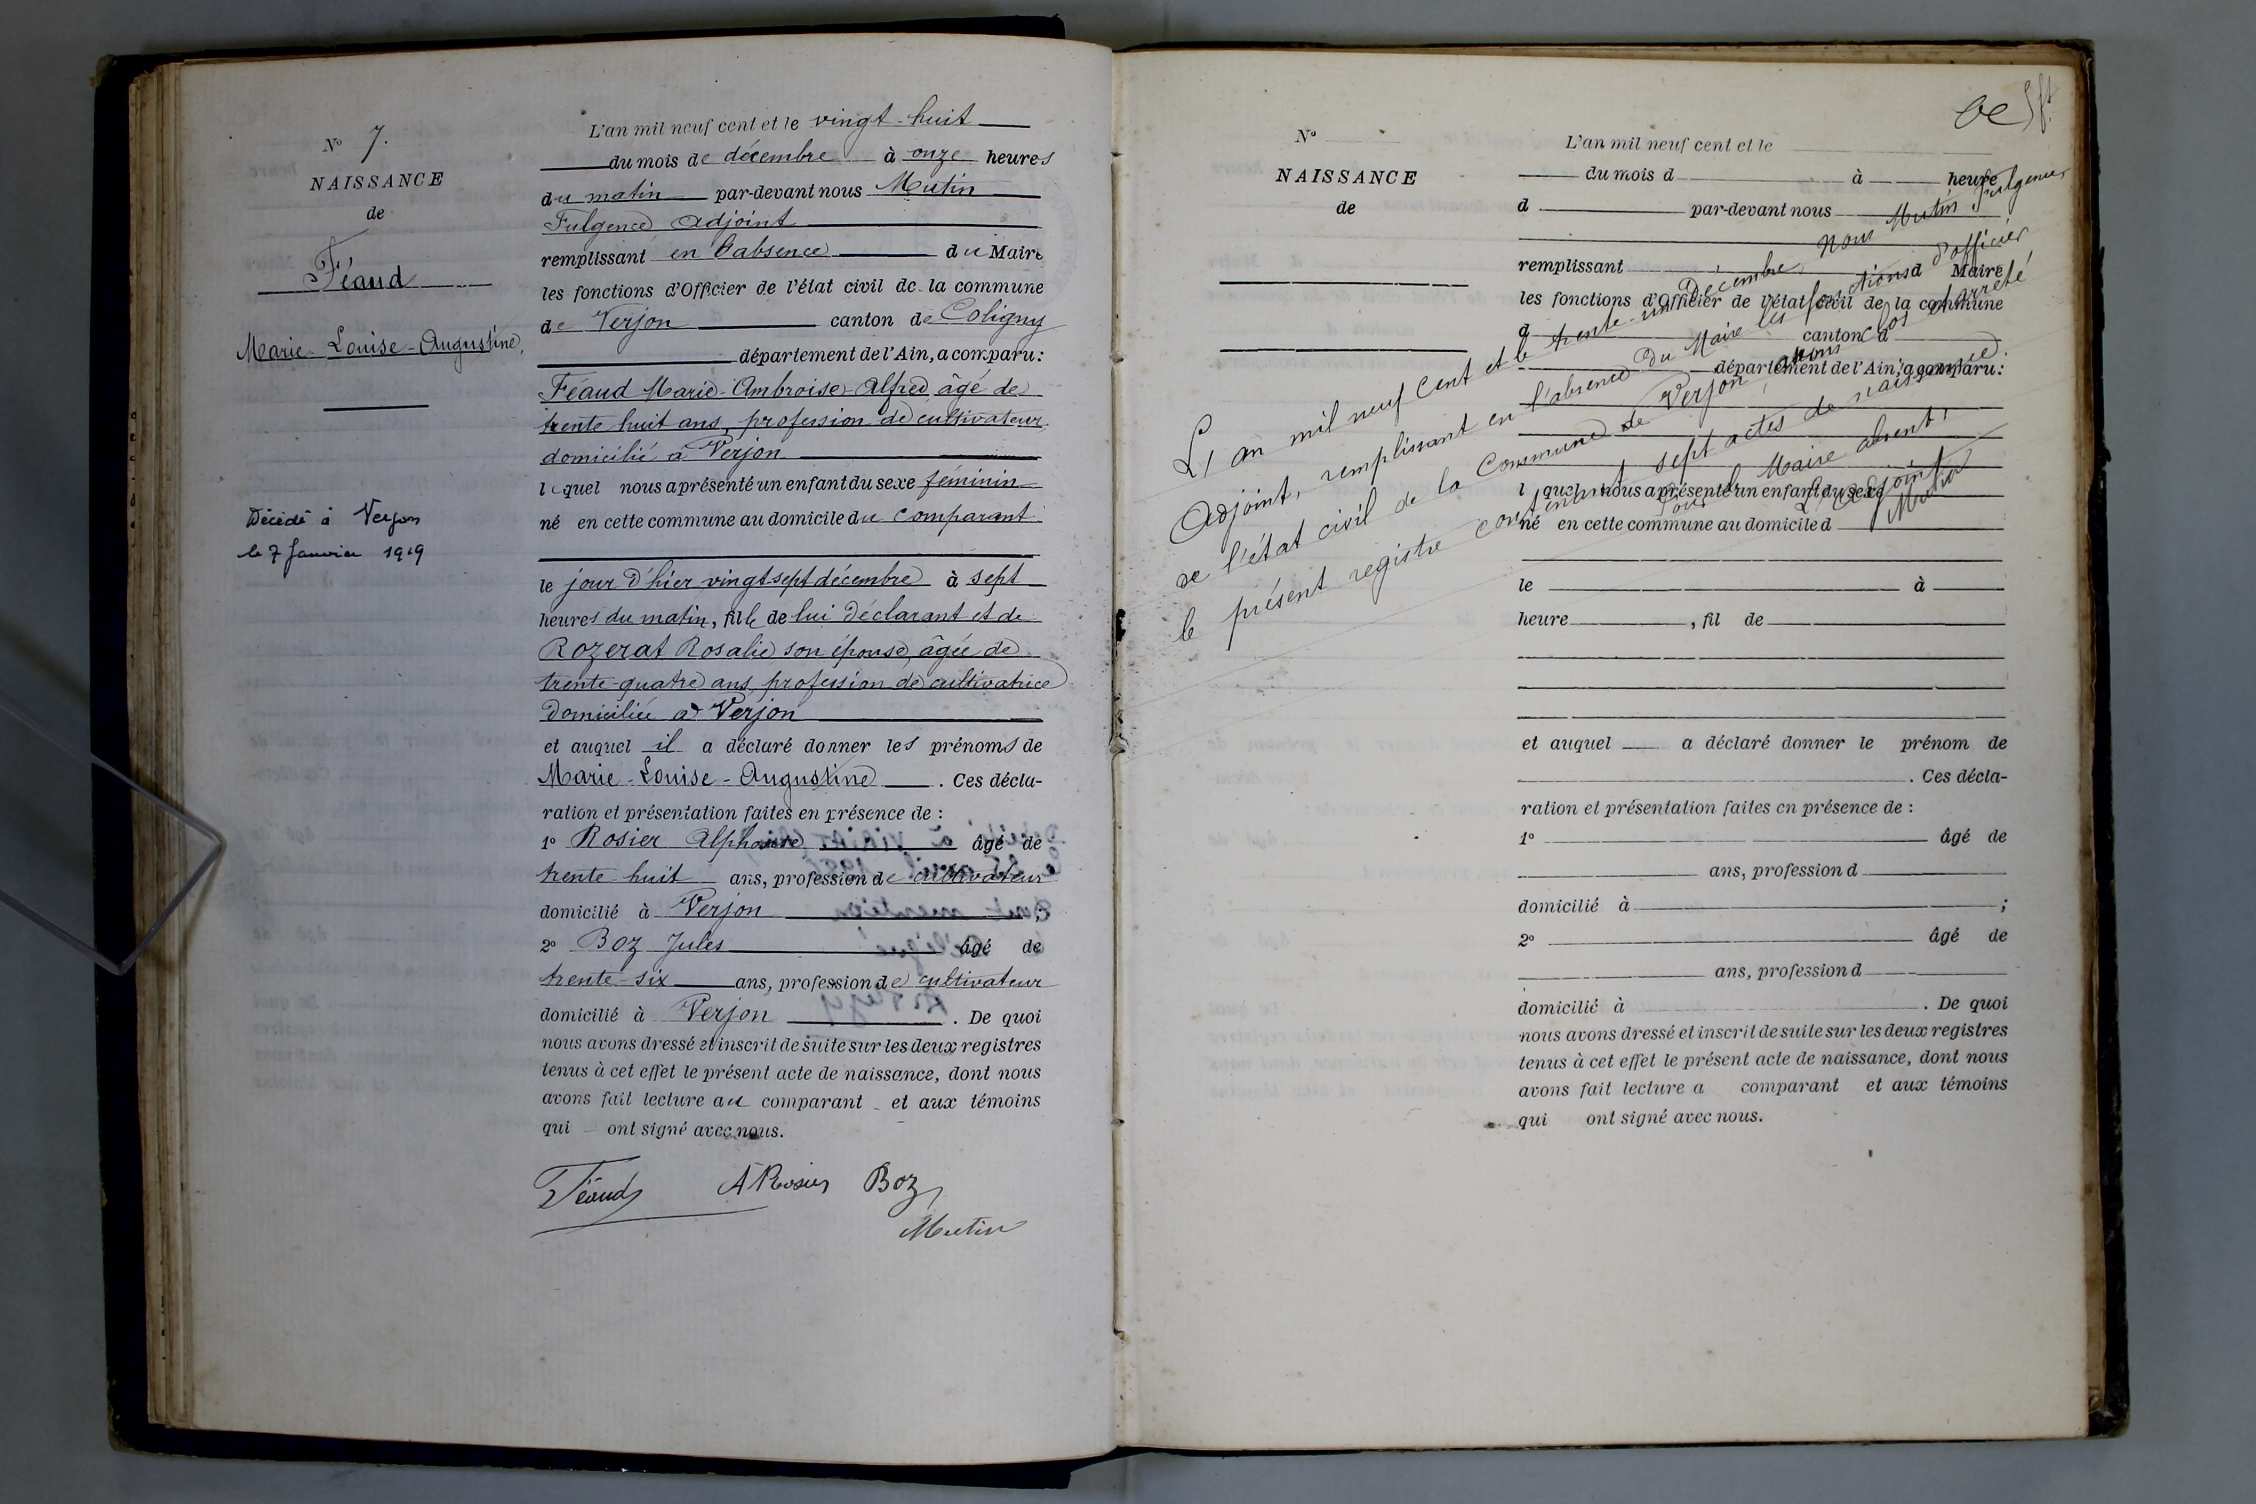 N° 7.
NAISSANCE
de
Féaud
Marie-Louise-Augustine,
Décédé à Verjon
le 7 Janvier 1919
L'an mil neuf cent et le vingt-huit
du mois de décembre à onze heures
du matin par-devant nous Mutin
Fulgence Adjoint
remplissant en l'absence du Maire
les fonctions d'Officier de l'état civil de la commune
de Verjon canton de Coligny
département de l'Ain, a comparu:
Féaud Marie-Ambroise-Alfred âgé de
trente huit ans, profession de cultivateur
domicilié à Verjon
lequel nous a présenté un enfant du sexe féminin
né en cette commune au domicile du comparant
le jour d'hier vingt sept décembre à sept
heures du matin, fille de lui déclarant et de
Rozerat Rosalie son épouse, âgée de
trente-quatre ans, profession de cultivatrice
domiciliée à Verjon
et auquel il a déclaré donner les prénoms de
Marie-Louise-Augustine. Ces décla-
ration et présentation faites en présence de :
1° Rosier Alphonse âgé de
trente huit ans, profession de cultivateur
domicilié à Verjon ;
2° Boz Jules âgé de
trente-six ans, profession de cultivateur
domicilié à Verjon. De quoi
nous avons dressé et inscrit de suite sur les deux registres
tenus à cet effet le présent acte de naissance, dont nous
avons fait lecture au comparant et aux témoins
qui ont signé avec nous.
Féaud A Rosier Boz
Mutin
N°
NAISSANCE
de
L'an mil neuf cent et le
du mois d à heure
d par-devant nous
remplissant d Maire
les fonctions d'Officier de l'état civil de la commune
d canton d
département de l'Ain, a comparu:
l quel nous a présenté un enfant du sexe
né en cette commune au domicile d
le à
heure , fil de
et auquel a déclaré donner le prénom de
. Ces décla-
ration et présentation faites en présence de :
1° âgé de
ans, profession d
domicilié à ;
2° âgé de
ans, profession d
domicilié à . De quoi
nous avons dressé et inscrit de suite sur les deux registres
tenus à cet effet le présent acte de naissance, dont nous
avons fait lecture a comparant et aux témoins
qui ont signé avec nous.
L'an mil neuf cent et le trente-un Décembre, Nous Mutin Fulgence,
Adjoint, remplissant en l'absence du Maire les fonctions d'officier
de l'état civil de la Commune de Verjon, avons clos et arrêté
le présent registre contenant sept actes de naissance.
Pour le Maire absent,
L'Adjoint
Mutin